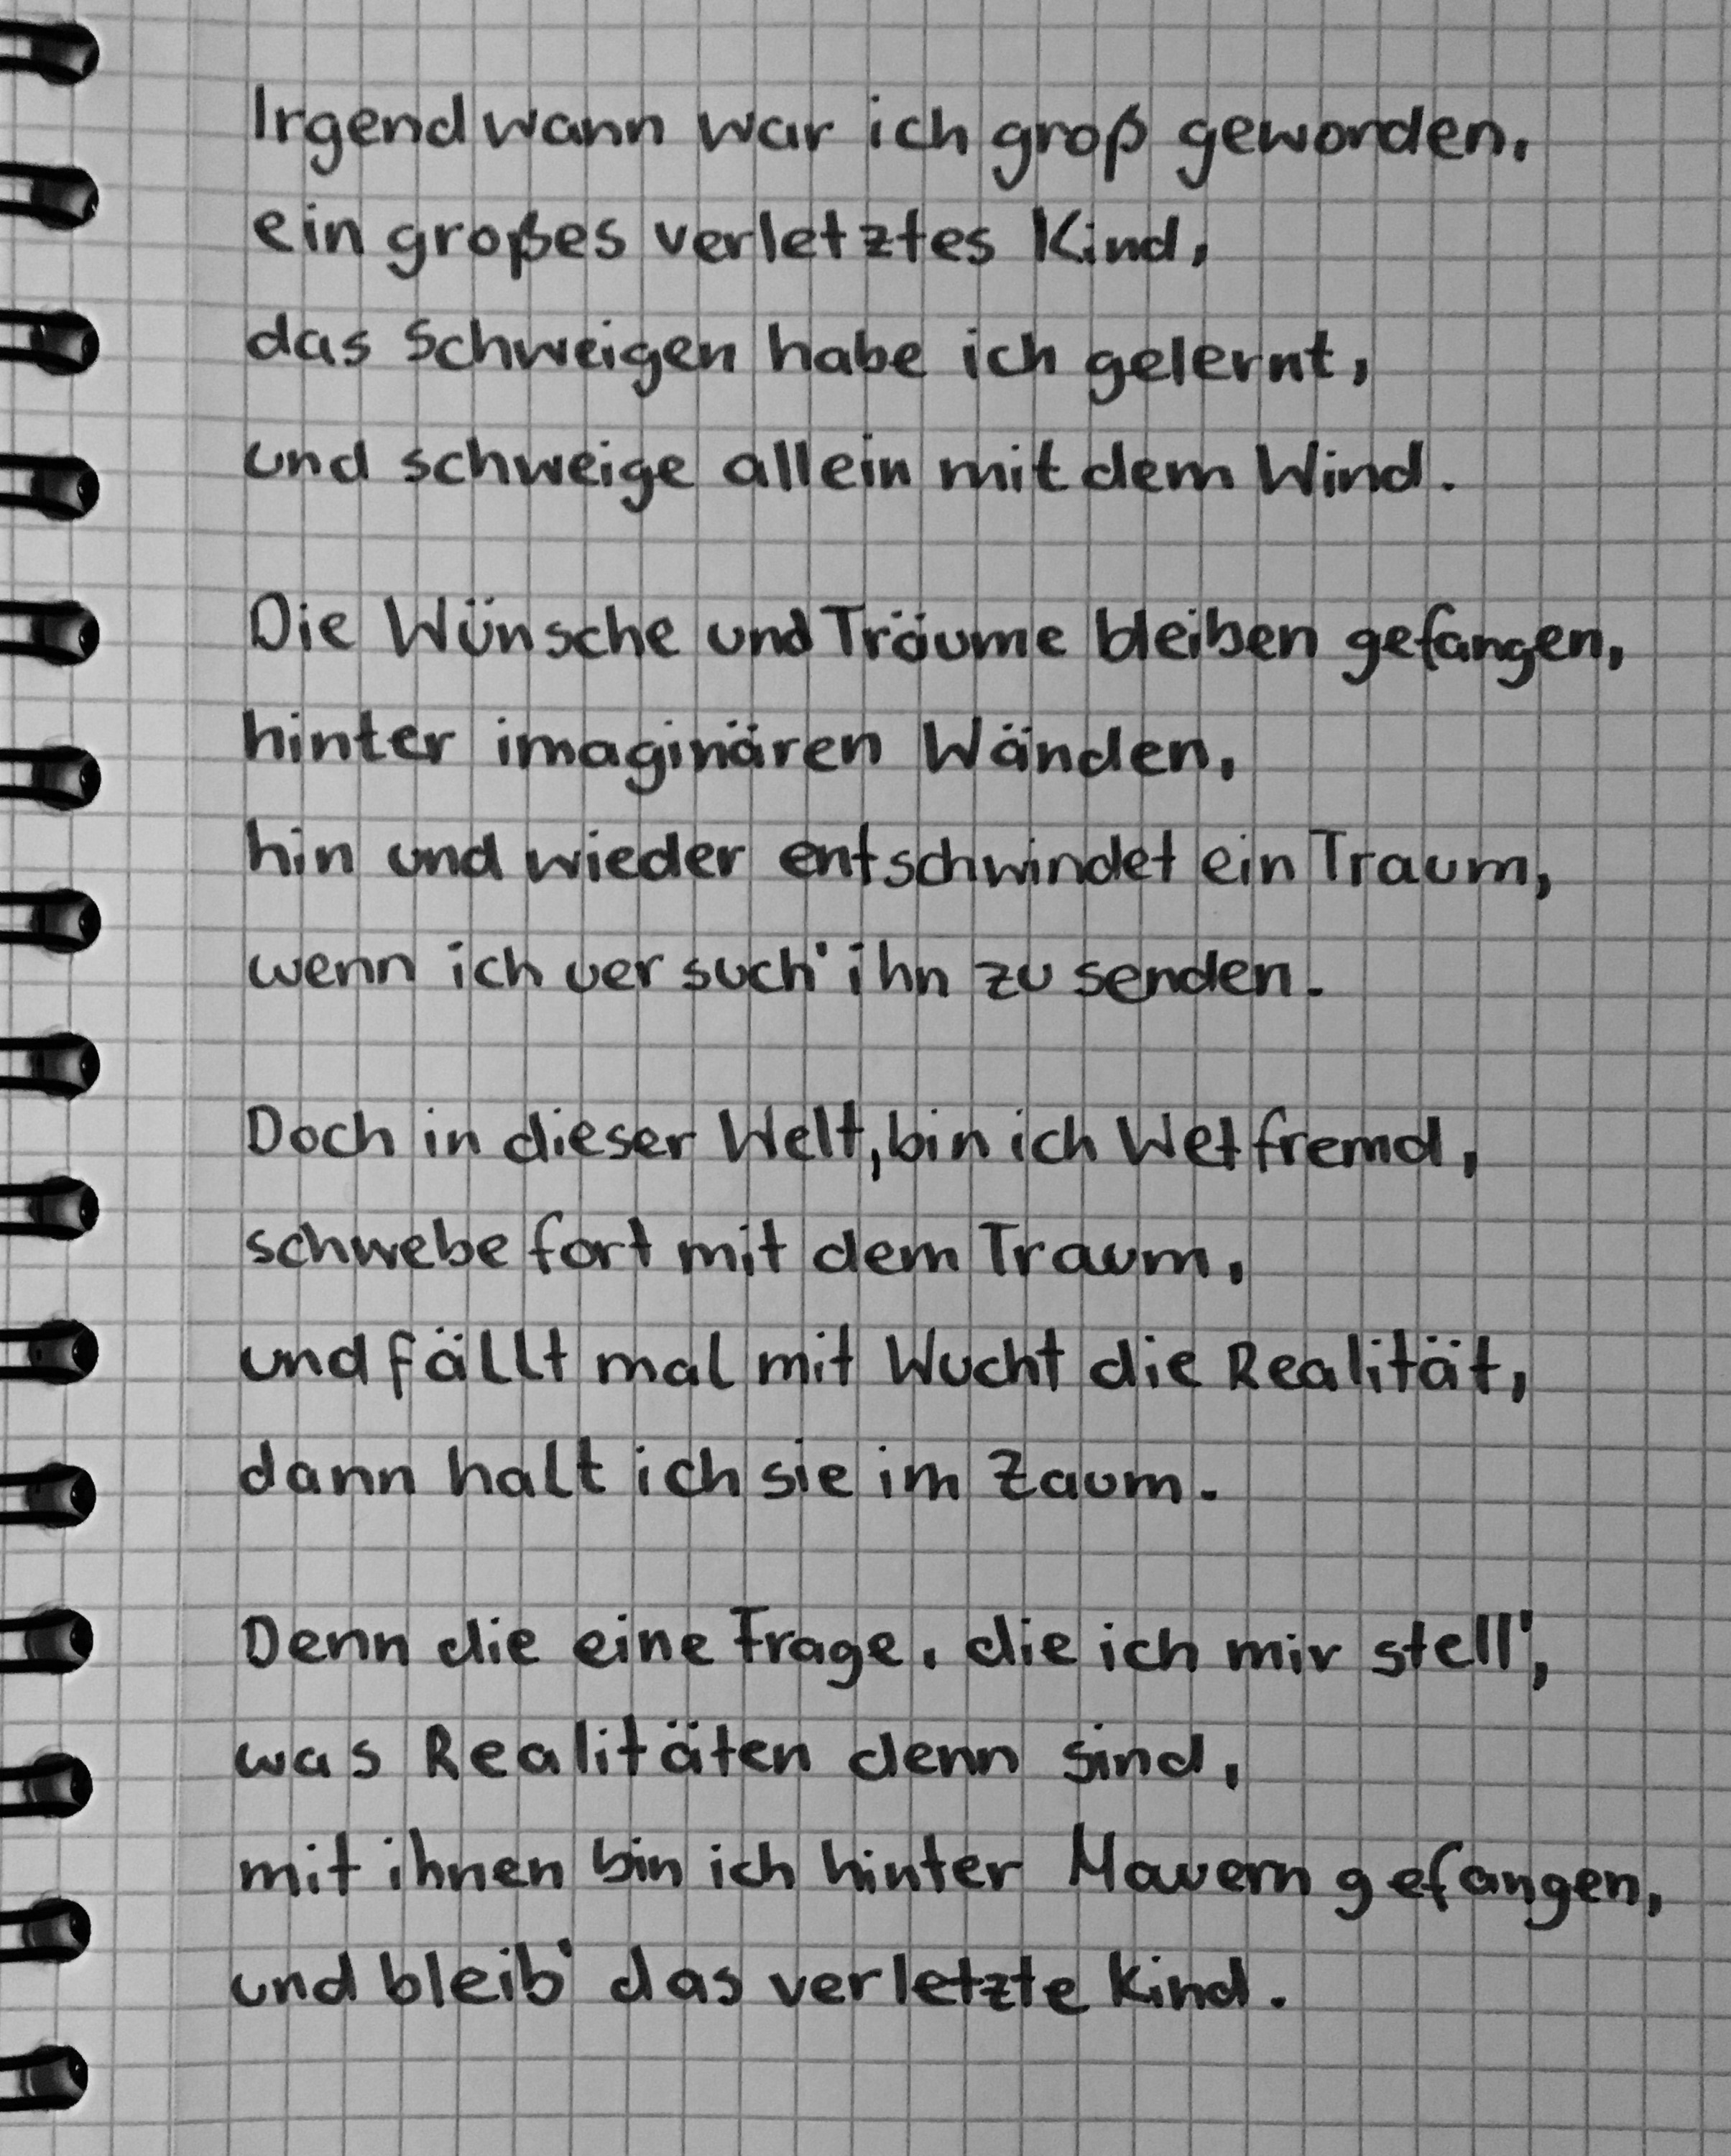 Irgendwann war ich groß geworden,
ein großes verletztes Kind,
das Schweigen habe ich gelernt,
und schweige allein mit dem Wind.
Die Wünsche und Träume bleiben gefangen,
hinter imaginären Wänden,
hin und wieder entschwindet ein Traum,
wenn ich versuch' ihn zu senden.
Doch in dieser Welt, bin ich Wetfremd,
schwebe fort mit dem Traum,
und fällt mal mit Wucht die Realität,
dann halt ich sie im Zaum.
Denn die eine Frage, die ich mir stell',
was Realitäten denn sind,
mit ihnen bin ich hinter Mauern gefangen,
und bleib' das verletzte Kind.